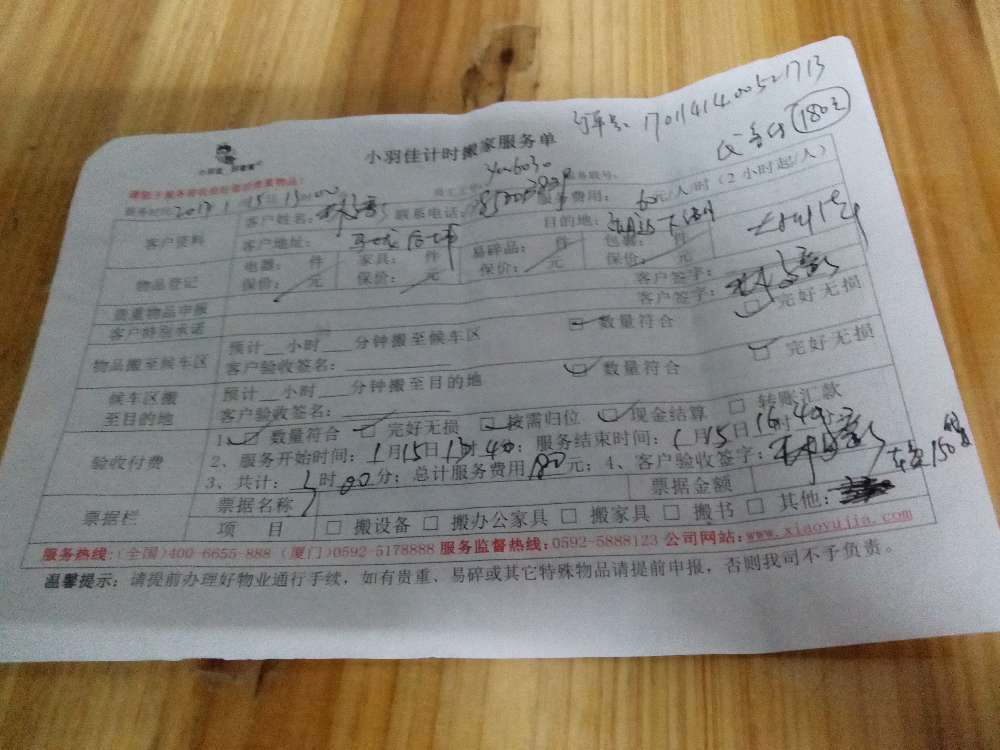 订单号: 1701141400521713
180元
小羽佳计时搬家服务单
服务时间: 2017 1 15日 13时00
服务费用: 60元/人/时（2小时起/人）
客户资料
客户姓名:
联系电话:
目的地:
客户地址:
物品登记
电器: 件 家具: 件 易碎品: 件 包裹: 件
保价: 元 保价: 元 保价: 元 保价: 元
贵重物品申报 客户签字:
客户特别承诺 客户签字:
物品搬至候车区
预计__小时___分钟搬至候车区 数量符合 完好无损
客户验收签名:
候车区搬至目的地
预计__小时___分钟搬至目的地 数量符合 完好无损
客户验收签名:
验收付费
1、数量符合 完好无损 按需归位 现金结算 转账汇款
2、服务开始时间: 1月15日13时40分; 服务结束时间: 1月15日16时40分
3、共计: 3时00分; 总计服务费用180元; 4、客户验收签字:
票据栏
票据名称 票据金额
项 目 搬设备 搬办公家具 搬家具 搬书 其他:
服务热线:(全国)400-6655-888 (厦门)0592-5178888 服务监督热线:0592-5888123 公司网站:www.xiaoyujia.com
温馨提示: 请提前办理好物业通行手续，如有贵重、易碎或其它特殊物品请提前申报，否则我司不予负责。